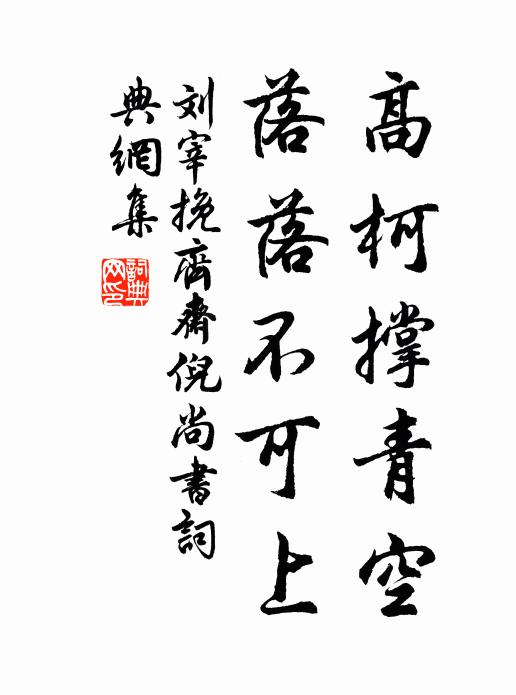 高柯撑青空
落落不可上
刘宰挽齊齋倪尚書詞
典網集
詞典网印